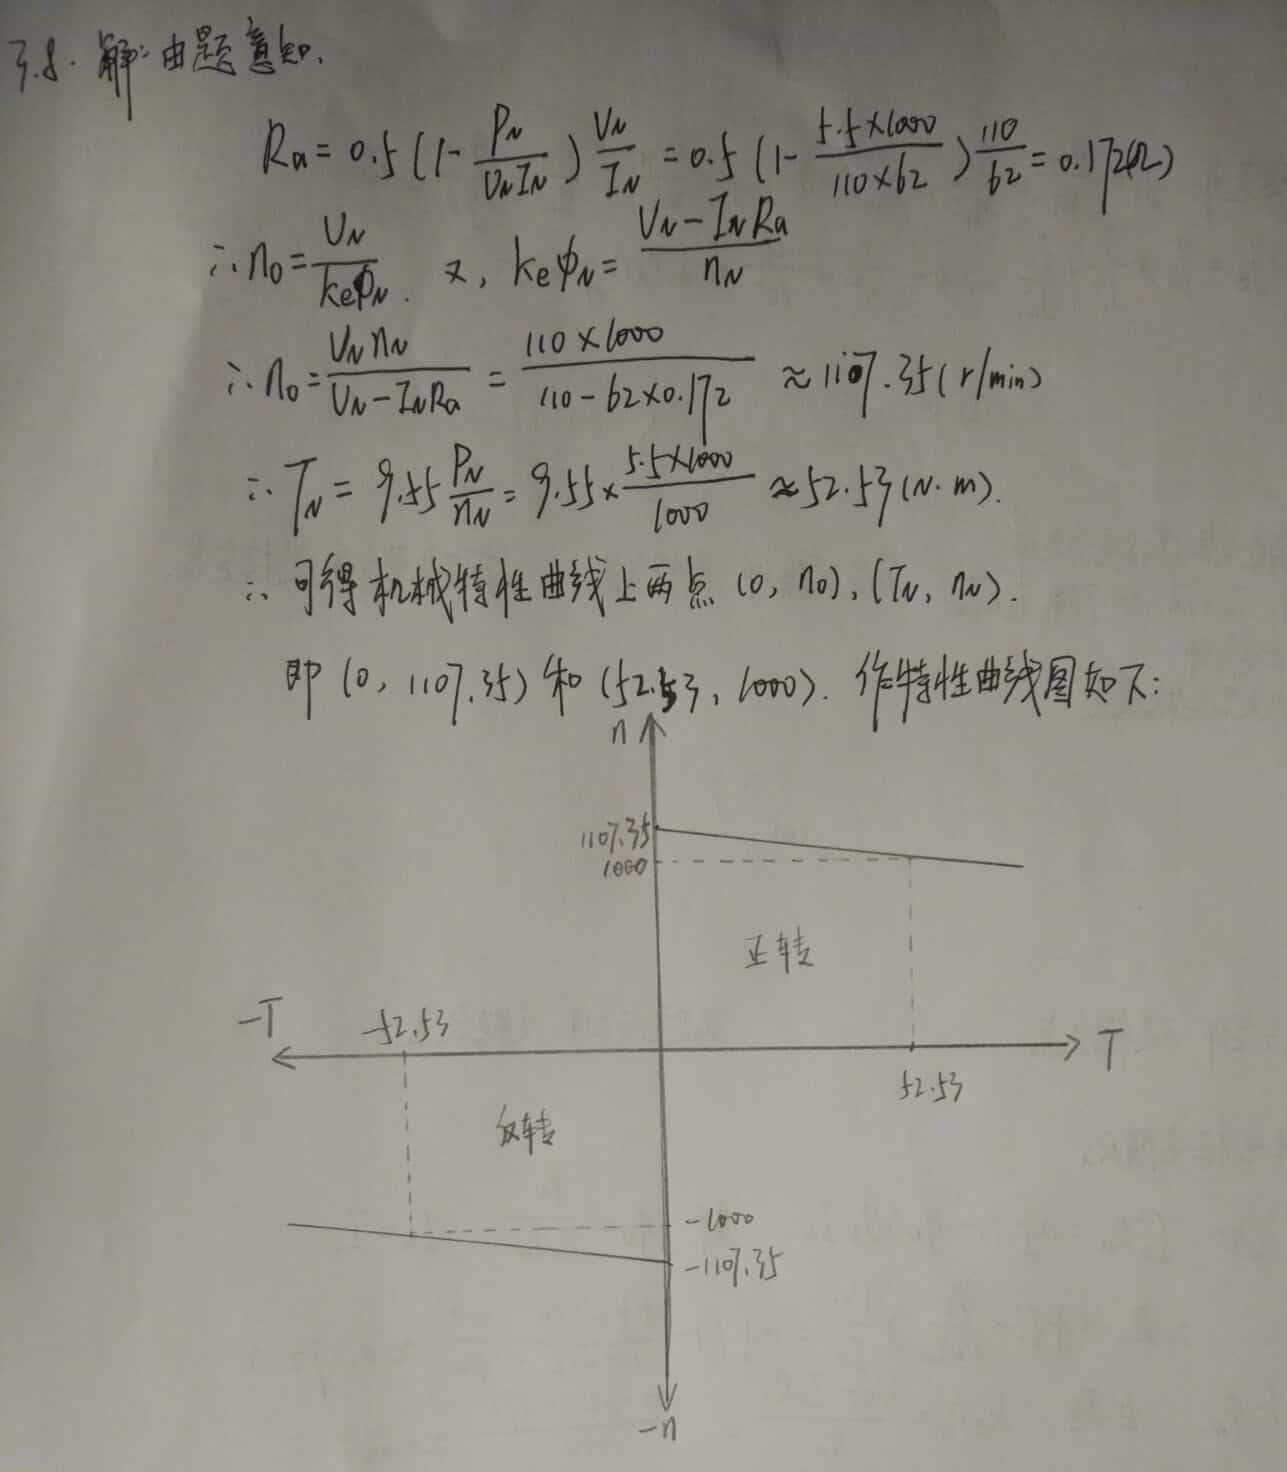 3.8. 解: 由题意知.
Ra = 0.5 (1 - PN/(UN IN)) UN/IN = 0.5 (1 - (5.5×1000)/(110×62)) 110/62 = 0.172(Ω)
∴ n0 = UN/(keΦN). 又, keΦN = (UN - IN Ra)/nN
∴ n0 = (UN nN)/(UN - IN Ra) = (110×1000)/(110 - 62×0.172) ≈ 1107.35 (r/min)
∴ TN = 9.55 PN/nN = 9.55 × (5.5×1000)/1000 ≈ 52.53 (N·m).
∴ 可得机械特性曲线上两点 (0, n0), (TN, nN).
即 (0, 1107.35) 和 (52.53, 1000). 作特性曲线图如下:
n
1107.35
1000
正转
-T
-52.53
T
52.53
反转
-1000
-1107.35
-n